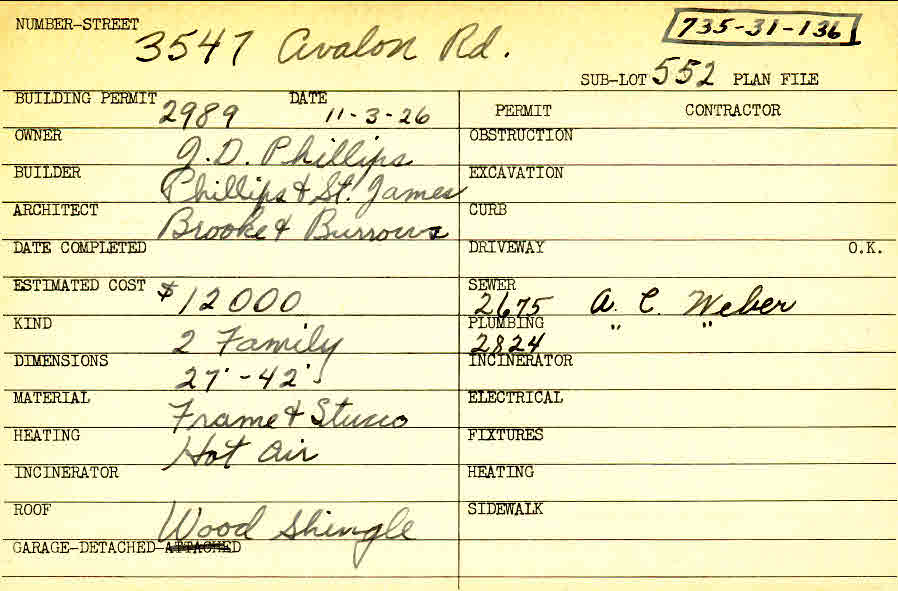 NUMBER-STREET 3547 Avalon Rd. 735-31-136
SUB-LOT 552 PLAN FILE
BUILDING PERMIT 2989 DATE 11-3-26 PERMIT CONTRACTOR
OWNER J.D. Phillips OBSTRUCTION
BUILDER Phillips & St. James EXCAVATION
ARCHITECT Brooke & Burrows CURB
DATE COMPLETED DRIVEWAY O.K.
ESTIMATED COST $12000 SEWER 2675 A. C. Weber
KIND 2 Family PLUMBING 2824 " "
DIMENSIONS 27'-42' INCINERATOR
MATERIAL Frame & Stucco ELECTRICAL
HEATING Hot Air FIXTURES
INCINERATOR HEATING
ROOF Wood Shingle SIDEWALK
GARAGE-DETACHED-ATTACHED